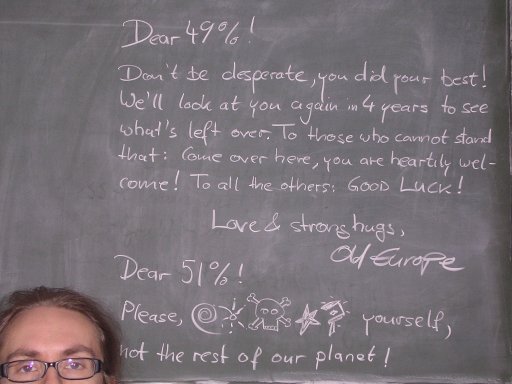 Dear 49%!
Don't be desperate, you did your best!
We'll look at you again in 4 years to see
what's left over. To those who cannot stand
that: Come over here, you are heartily wel-
come! To all the others: GOOD LUCK!
Love & strong hugs,
Old Europe
Dear 51%!
Please, yourself,
not the rest of our planet!